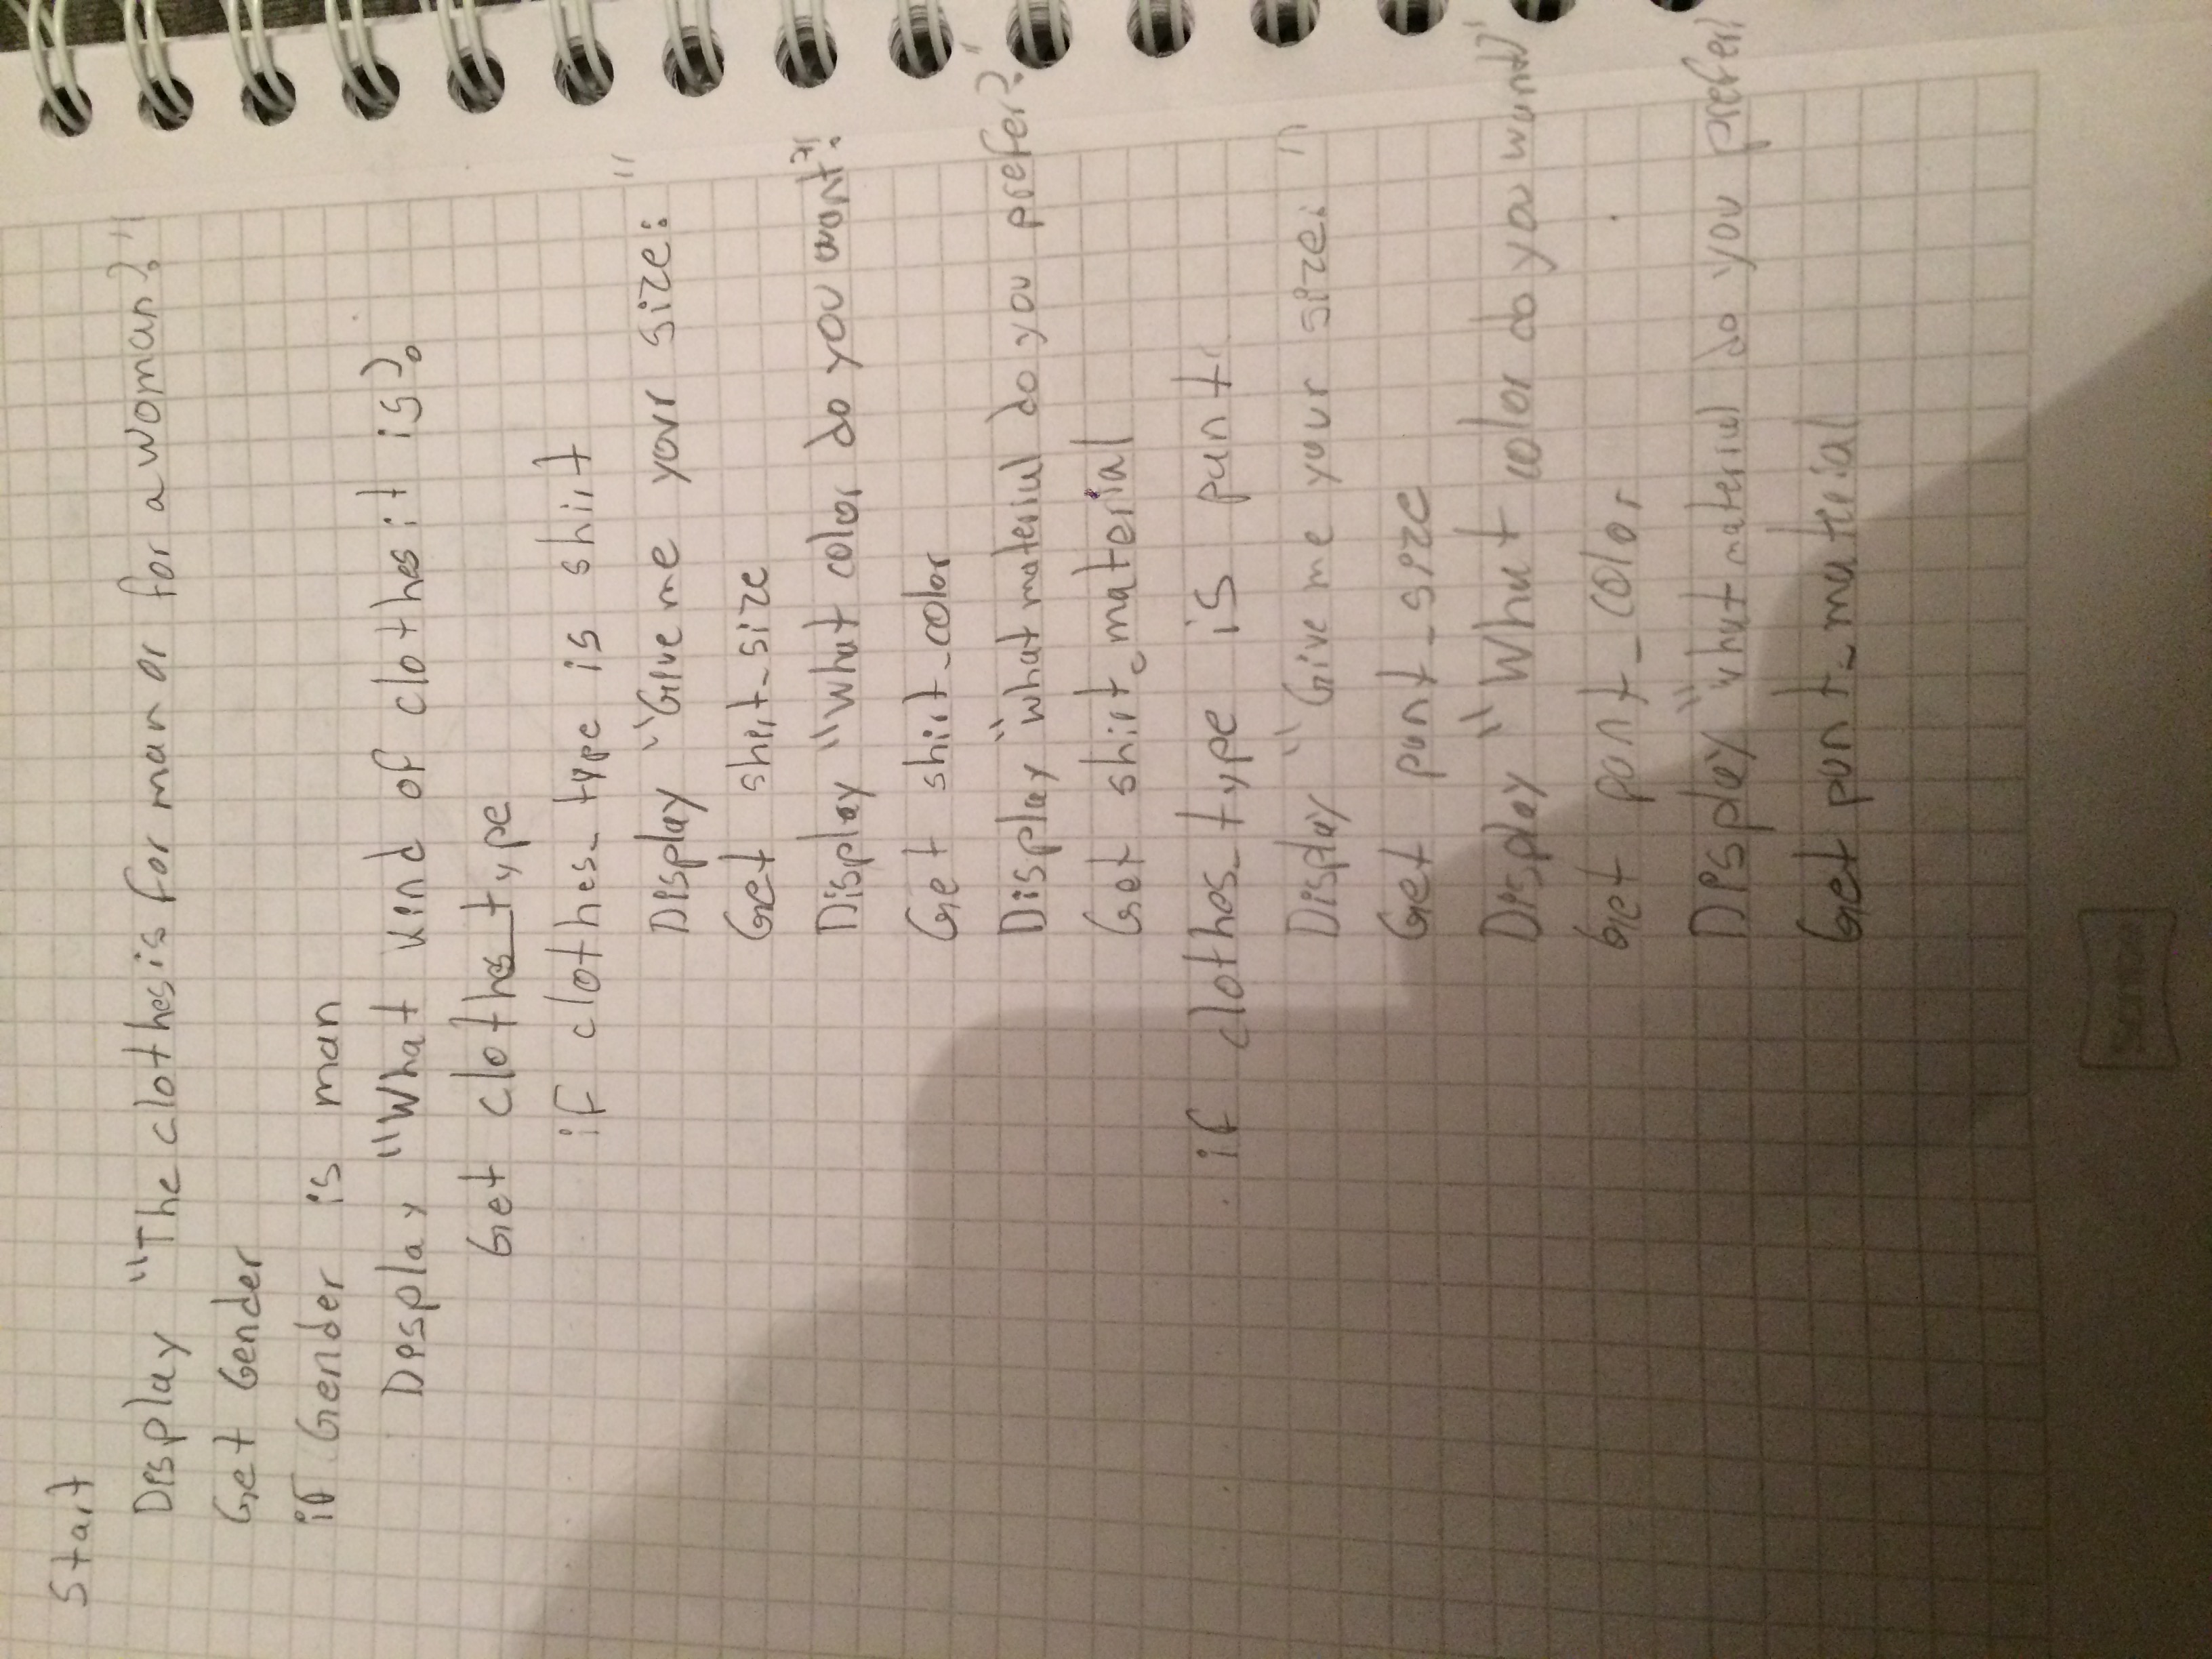 Start
Display "The clothes is for man or for a woman?"
Get Gender
if Gender is man
Display "What kind of clothes it is?
Get clothes_type
if clothes_type is shirt
Display "Give me your size: "
Get shirt_size
Display "What color do you want?"
Get shirt_color
Display "what material do you prefer?"
Get shirt_material
if clothes_type is pant
Display "Give me your size: "
Get pant_size
Display "What color do you want?"
Get pant_color
Display "what material do you prefer?
Get pant_material
Scribe